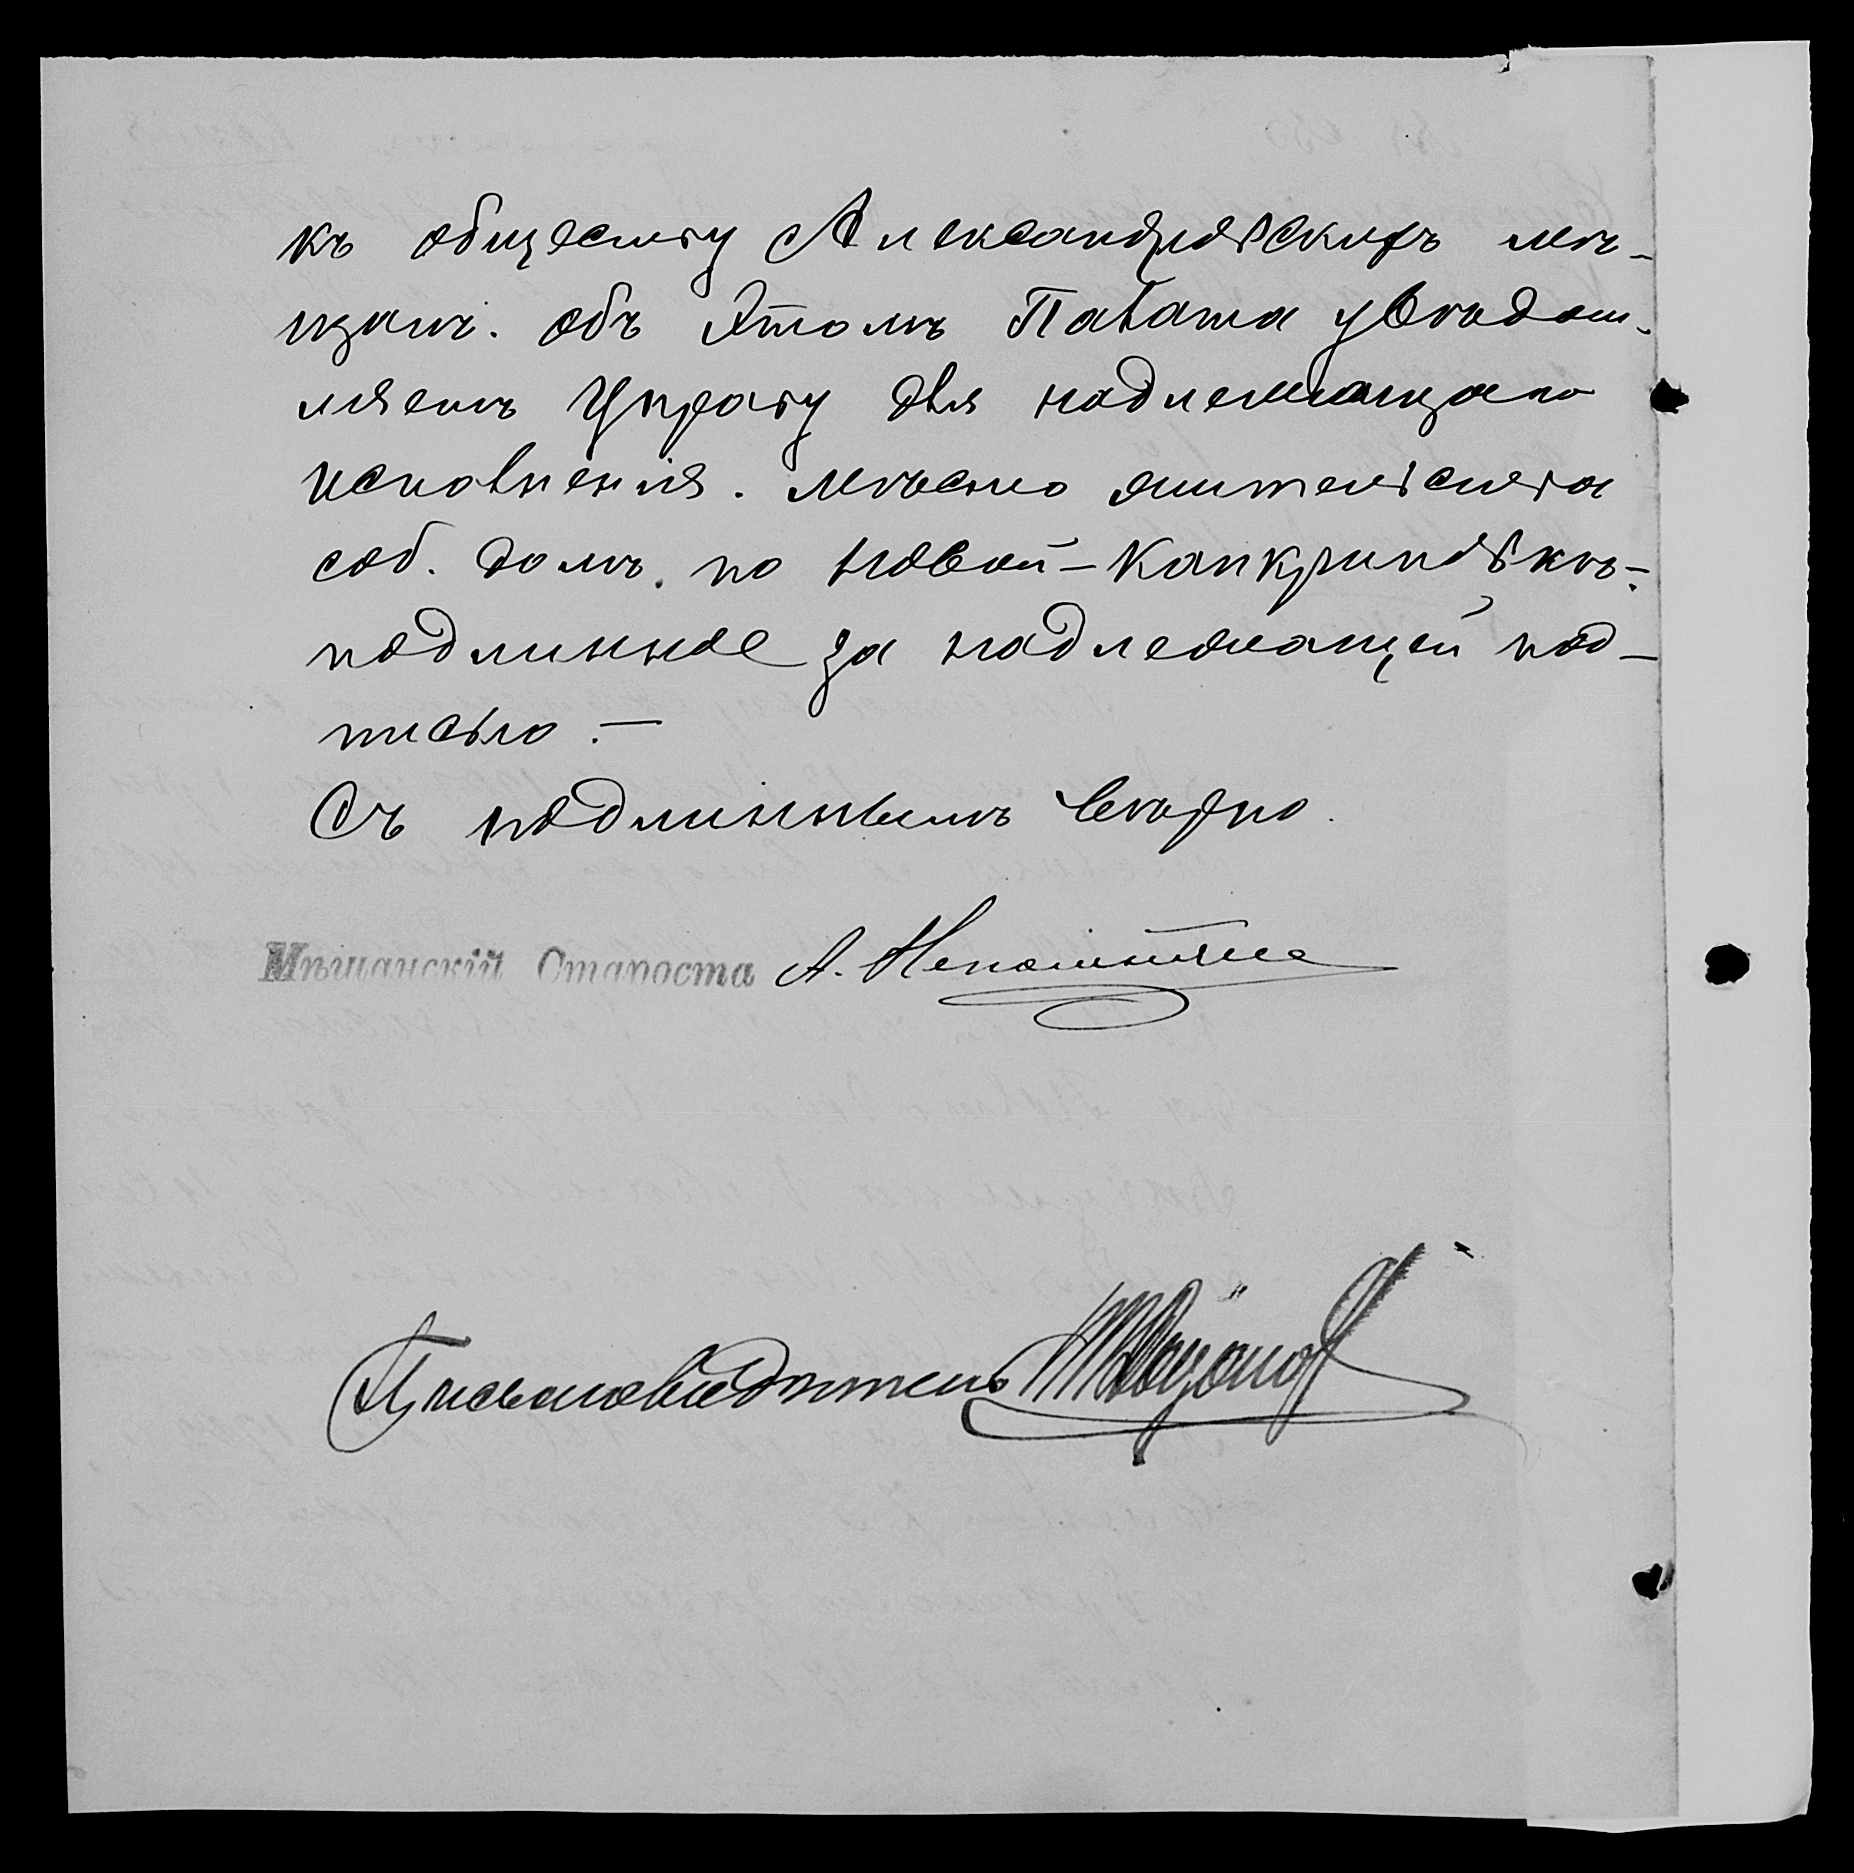 къ обществу Александровскихъ мѣ-
щанъ. объ этомъ Палата увѣдом-
ляетъ Управу для надлежащаго
исполненія. мѣсто жительства
соб. домъ. по Новой-Канкриновкѣ-.
подлинное за надлежащей под-
писью.-
Съ подлиннымъ вѣрно.
Мѣщанскій Староста А.
Письмоводитель